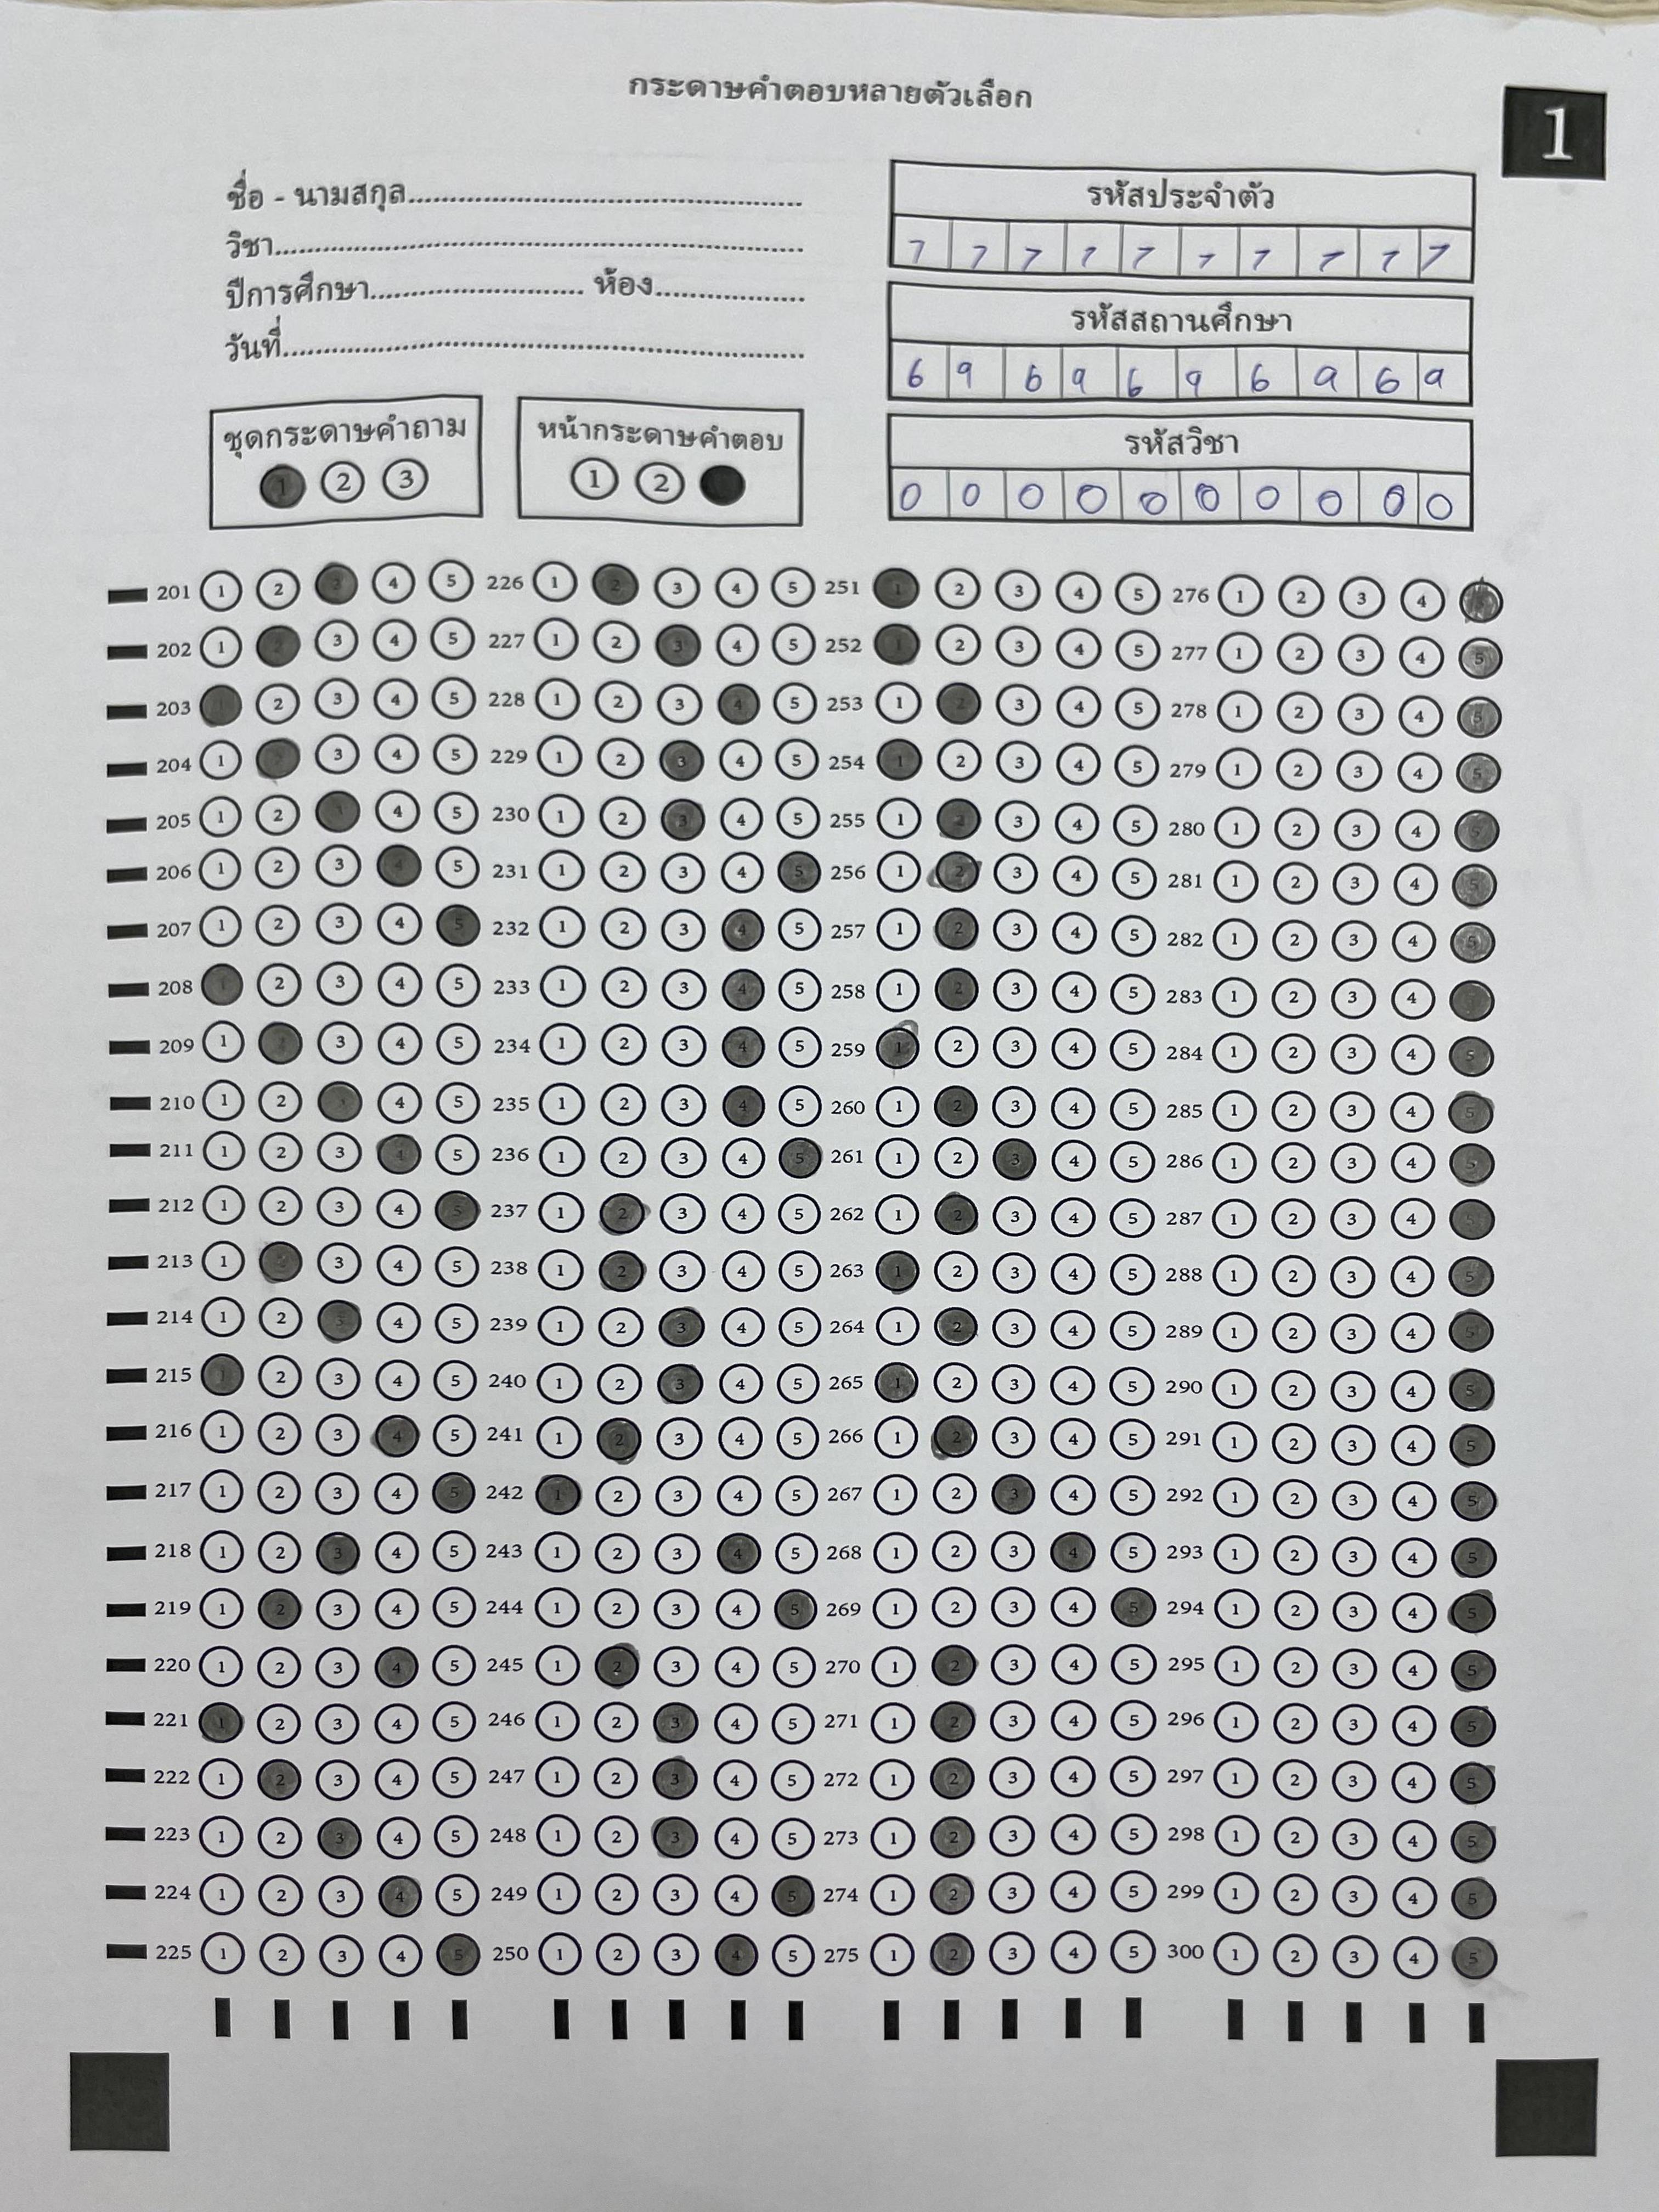 กระดาษคำตอบหลายตัวเลือก
1
ชื่อ - นามสกุล
วิชา
ปีการศึกษา ห้อง
วันที่
รหัสประจำตัว
7 7 7 7 7 7 7 7 7 7
รหัสสถานศึกษา
6 9 6 9 6 9 6 9 6 9
รหัสวิชา
0 0 0 0 0 0 0 0 0 0
ชุดกระดาษคำถาม
1 2 3
หน้ากระดาษคำตอบ
1 2
201 1 2 3 4 5 226 1 2 3 4 5 251 1 2 3 4 5 276 1 2 3 4 5
202 1 2 3 4 5 227 1 2 3 4 5 252 1 2 3 4 5 277 1 2 3 4 5
203 1 2 3 4 5 228 1 2 3 4 5 253 1 2 3 4 5 278 1 2 3 4 5
204 1 2 3 4 5 229 1 2 3 4 5 254 1 2 3 4 5 279 1 2 3 4 5
205 1 2 3 4 5 230 1 2 3 4 5 255 1 2 3 4 5 280 1 2 3 4 5
206 1 2 3 4 5 231 1 2 3 4 5 256 1 2 3 4 5 281 1 2 3 4 5
207 1 2 3 4 5 232 1 2 3 4 5 257 1 2 3 4 5 282 1 2 3 4 5
208 1 2 3 4 5 233 1 2 3 4 5 258 1 2 3 4 5 283 1 2 3 4 5
209 1 2 3 4 5 234 1 2 3 4 5 259 1 2 3 4 5 284 1 2 3 4 5
210 1 2 3 4 5 235 1 2 3 4 5 260 1 2 3 4 5 285 1 2 3 4 5
211 1 2 3 4 5 236 1 2 3 4 5 261 1 2 3 4 5 286 1 2 3 4 5
212 1 2 3 4 5 237 1 2 3 4 5 262 1 2 3 4 5 287 1 2 3 4 5
213 1 2 3 4 5 238 1 2 3 4 5 263 1 2 3 4 5 288 1 2 3 4 5
214 1 2 3 4 5 239 1 2 3 4 5 264 1 2 3 4 5 289 1 2 3 4 5
215 1 2 3 4 5 240 1 2 3 4 5 265 1 2 3 4 5 290 1 2 3 4 5
216 1 2 3 4 5 241 1 2 3 4 5 266 1 2 3 4 5 291 1 2 3 4 5
217 1 2 3 4 5 242 1 2 3 4 5 267 1 2 3 4 5 292 1 2 3 4 5
218 1 2 3 4 5 243 1 2 3 4 5 268 1 2 3 4 5 293 1 2 3 4 5
219 1 2 3 4 5 244 1 2 3 4 5 269 1 2 3 4 5 294 1 2 3 4 5
220 1 2 3 4 5 245 1 2 3 4 5 270 1 2 3 4 5 295 1 2 3 4 5
221 1 2 3 4 5 246 1 2 3 4 5 271 1 2 3 4 5 296 1 2 3 4 5
222 1 2 3 4 5 247 1 2 3 4 5 272 1 2 3 4 5 297 1 2 3 4 5
223 1 2 3 4 5 248 1 2 3 4 5 273 1 2 3 4 5 298 1 2 3 4 5
224 1 2 3 4 5 249 1 2 3 4 5 274 1 2 3 4 5 299 1 2 3 4 5
225 1 2 3 4 5 250 1 2 3 4 5 275 1 2 3 4 5 300 1 2 3 4 5